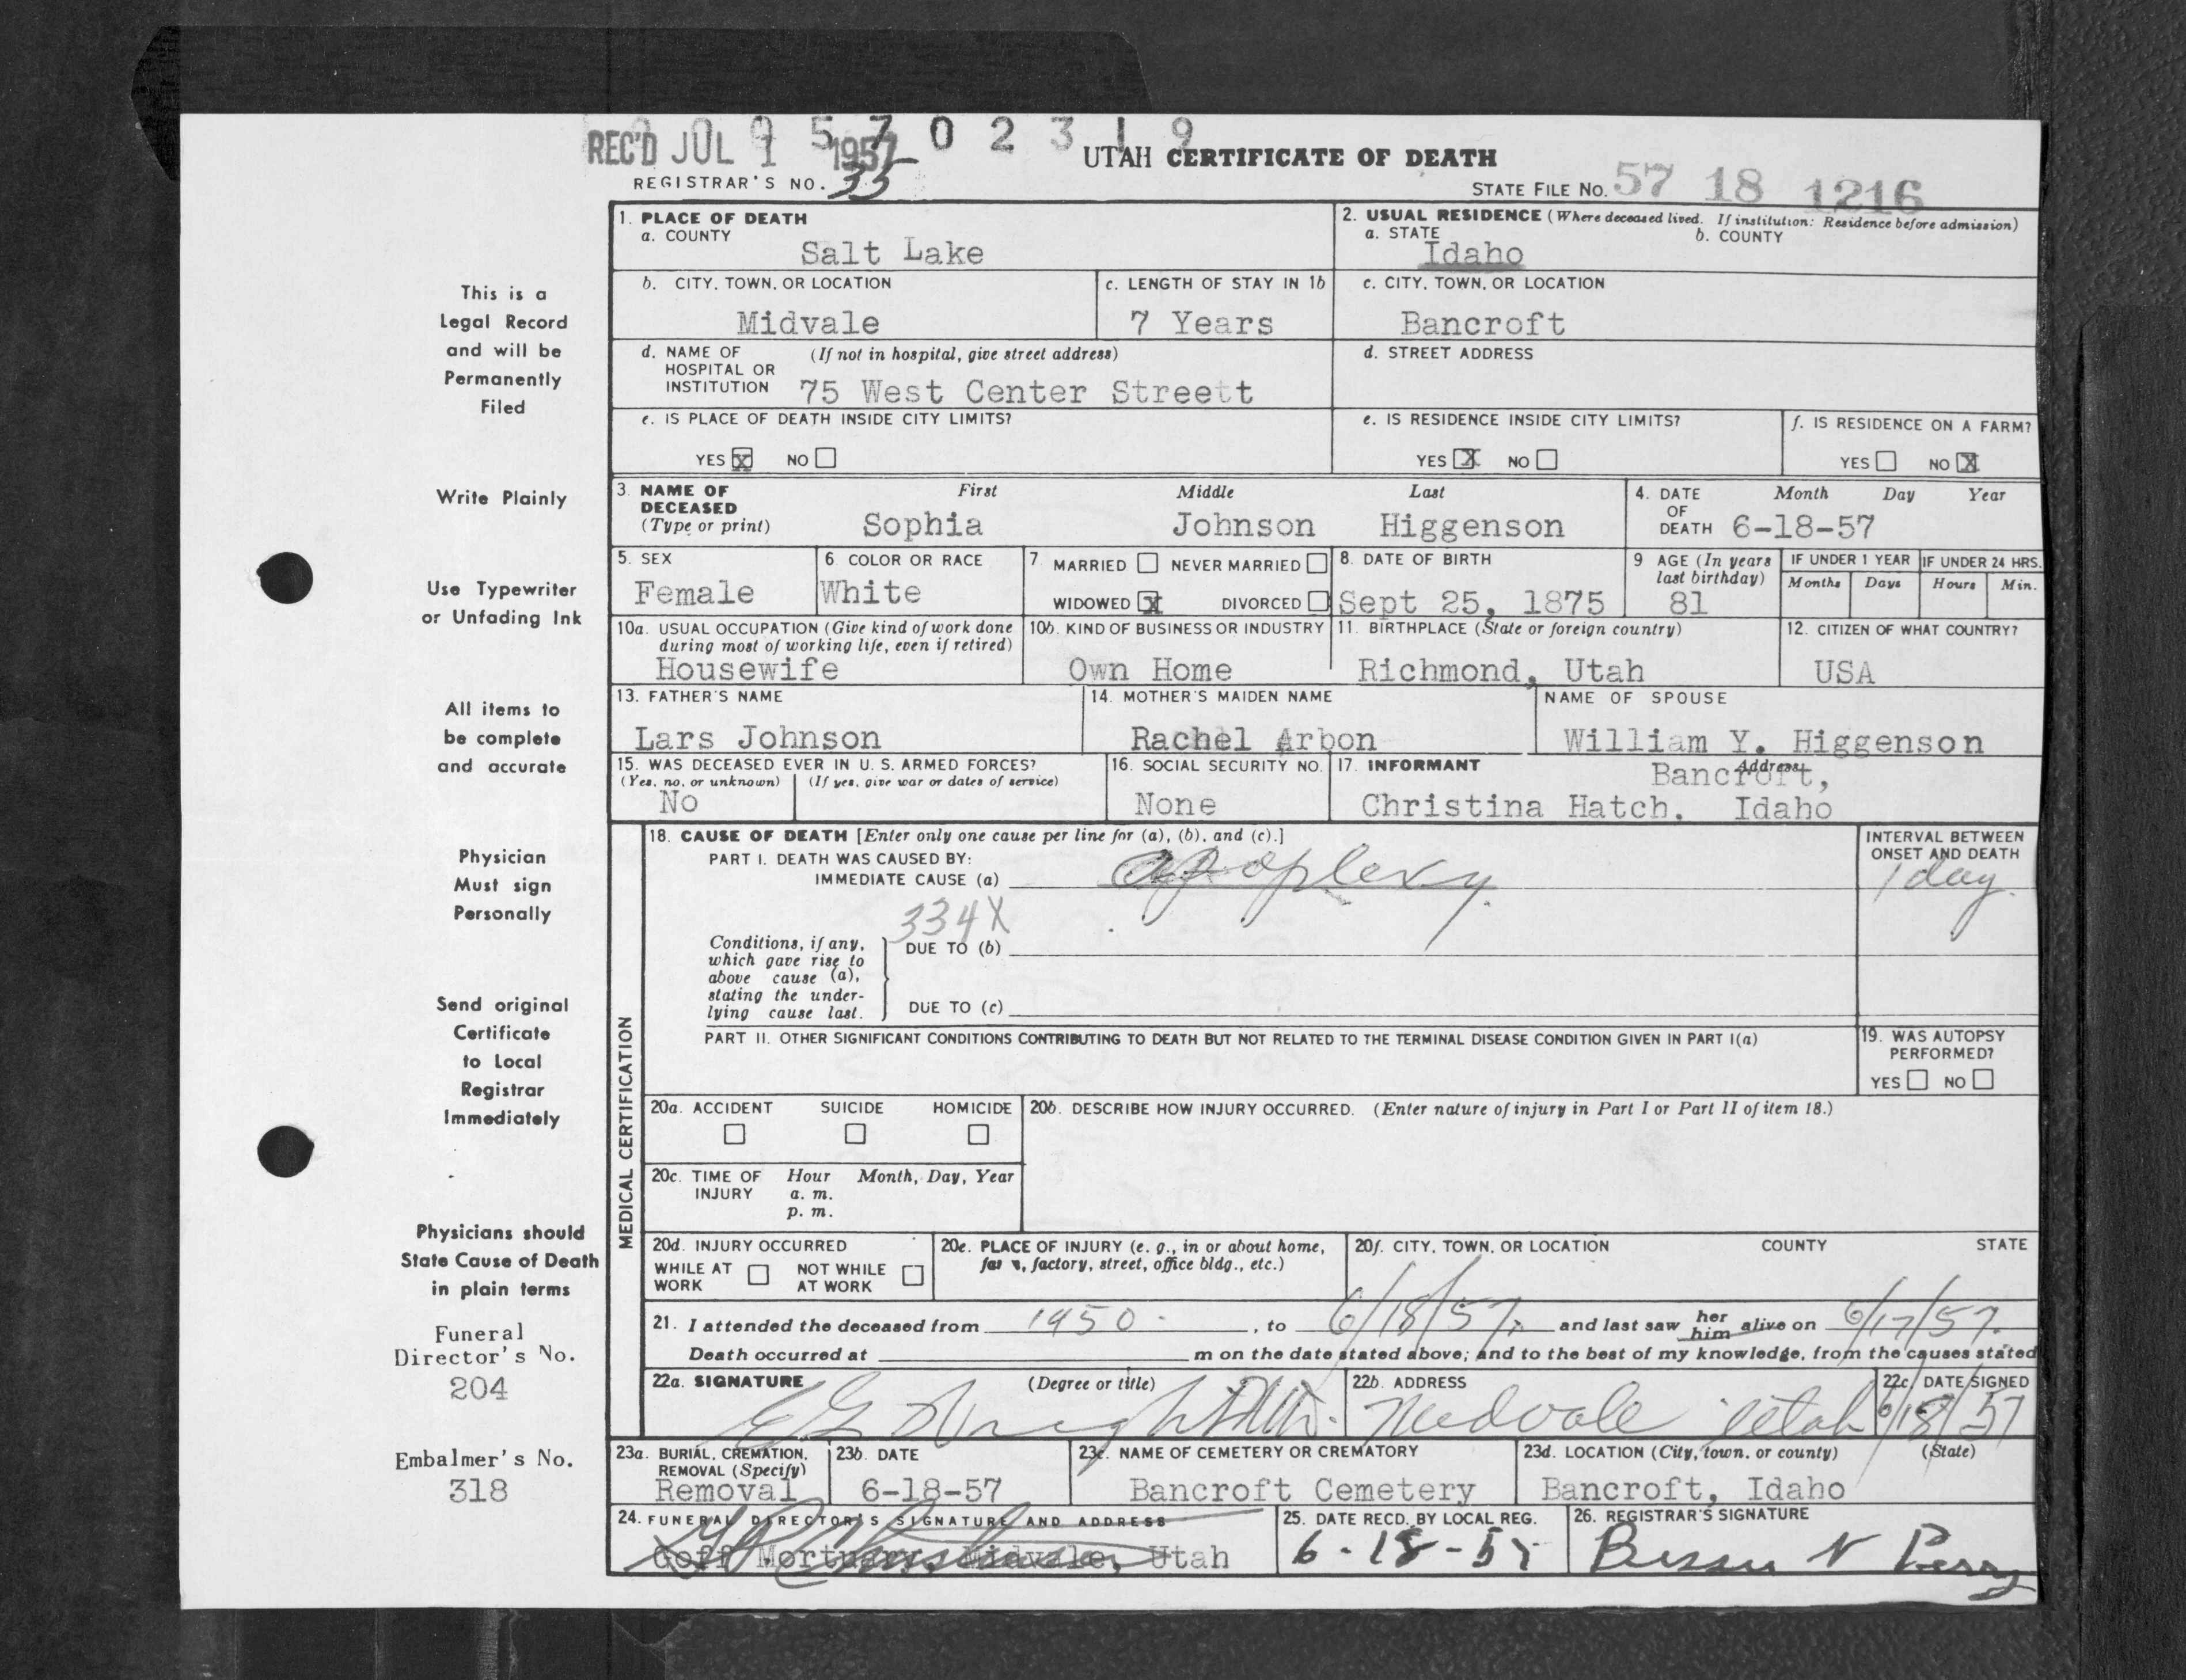 REC'D JUL 1 1957
0 2 3 1 9
UTAH CERTIFICATE OF DEATH
REGISTRAR'S NO. 35
STATE FILE NO. 57 18 1216
This is a
Legal Record
and will be
Permanently
Filed
Write Plainly
Use Typewriter
or Unfading Ink
All items to
be complete
and accurate
Physician
Must sign
Personally
Send original
Certificate
to Local
Registrar
Immediately
Physicians should
State Cause of Death
in plain terms
Funeral
Director's No.
204
Embalmer's No.
318
1. PLACE OF DEATH
a. COUNTY
Salt Lake
2. USUAL RESIDENCE (Where deceased lived. If institution: Residence before admission)
a. STATE b. COUNTY
Idaho
b. CITY, TOWN, OR LOCATION
Midvale
c. LENGTH OF STAY IN 1b
7 Years
c. CITY, TOWN, OR LOCATION
Bancroft
d. NAME OF (If not in hospital, give street address)
HOSPITAL OR
INSTITUTION 75 West Center Streett
d. STREET ADDRESS
e. IS PLACE OF DEATH INSIDE CITY LIMITS?
YES X NO
e. IS RESIDENCE INSIDE CITY LIMITS?
YES X NO
f. IS RESIDENCE ON A FARM?
YES NO X
3. NAME OF First Middle Last
DECEASED
(Type or print) Sophia Johnson Higgenson
4. DATE Month Day Year
OF
DEATH 6-18-57
5. SEX
Female
6. COLOR OR RACE
White
7. MARRIED NEVER MARRIED
WIDOWED X DIVORCED
8. DATE OF BIRTH
Sept 25, 1875
9 AGE (In years
last birthday)
81
IF UNDER 1 YEAR
Months Days
IF UNDER 24 HRS.
Hours Min.
10a. USUAL OCCUPATION (Give kind of work done
during most of working life, even if retired)
Housewife
10b. KIND OF BUSINESS OR INDUSTRY
Own Home
11. BIRTHPLACE (State or foreign country)
Richmond, Utah
12. CITIZEN OF WHAT COUNTRY?
USA
13. FATHER'S NAME
Lars Johnson
14. MOTHER'S MAIDEN NAME
Rachel Arbon
NAME OF SPOUSE
William Y. Higgenson
15. WAS DECEASED EVER IN U. S. ARMED FORCES?
(Yes, no, or unknown) (If yes, give war or dates of service)
No
16. SOCIAL SECURITY NO.
None
17. INFORMANT Address
Bancroft,
Christina Hatch. Idaho
MEDICAL CERTIFICATION
18. CAUSE OF DEATH [Enter only one cause per line for (a), (b), and (c).]
PART I. DEATH WAS CAUSED BY:
IMMEDIATE CAUSE (a) apoplexy.
INTERVAL BETWEEN
ONSET AND DEATH
1 day.
334X
Conditions, if any,
which gave rise to
above cause (a),
stating the under-
lying cause last.
DUE TO (b)
DUE TO (c)
PART II. OTHER SIGNIFICANT CONDITIONS CONTRIBUTING TO DEATH BUT NOT RELATED TO THE TERMINAL DISEASE CONDITION GIVEN IN PART I(a)
19. WAS AUTOPSY
PERFORMED?
YES NO
20a. ACCIDENT SUICIDE HOMICIDE
20b. DESCRIBE HOW INJURY OCCURRED. (Enter nature of injury in Part I or Part II of item 18.)
20c. TIME OF Hour Month, Day, Year
INJURY a. m.
p. m.
20d. INJURY OCCURRED
WHILE AT NOT WHILE
WORK AT WORK
20e. PLACE OF INJURY (e. g., in or about home,
farm, factory, street, office bldg., etc.)
20f. CITY, TOWN, OR LOCATION COUNTY STATE
21. I attended the deceased from 1950. , to 6/18/57. and last saw her him alive on 6/17/57.
Death occurred at m on the date stated above; and to the best of my knowledge, from the causes stated
22a. SIGNATURE (Degree or title)
22b. ADDRESS
Midvale Utah
22c. DATE SIGNED
6/18/57
23a. BURIAL, CREMATION,
REMOVAL (Specify)
Removal
23b. DATE
6-18-57
23c. NAME OF CEMETERY OR CREMATORY
Bancroft Cemetery
23d. LOCATION (City, town, or county) (State)
Bancroft, Idaho
24. FUNERAL DIRECTOR'S SIGNATURE AND ADDRESS
Goff Mortuary, Midvale, Utah
25. DATE RECD. BY LOCAL REG.
6-18-57
26. REGISTRAR'S SIGNATURE
N Perry